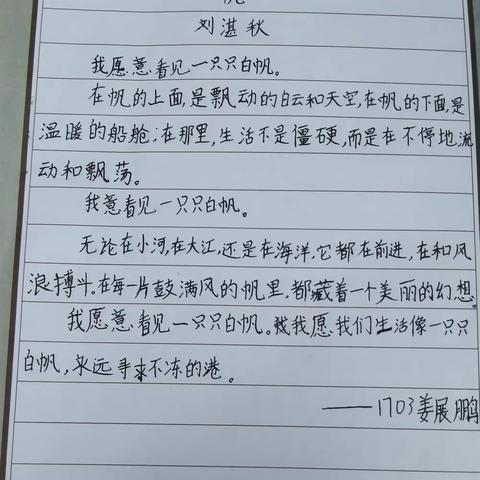 帆
刘湛秋
我愿意看见一只只白帆。
在帆的上面,是飘动的白云和天空,在帆的下面,是
温暖的船舱;在那里,生活不是僵硬,而是在不停地流
动和飘荡。
我意看见一只只白帆。
无论在小河,在大江,还是在海洋,它都在前进,在和风
浪搏斗。在每一片鼓满风的帆里,都藏着一个美丽的幻想。
我愿意看见一只只白帆。我愿我们生活像一只只
白帆,永远寻求不冻的港。
——1703姜展鹏